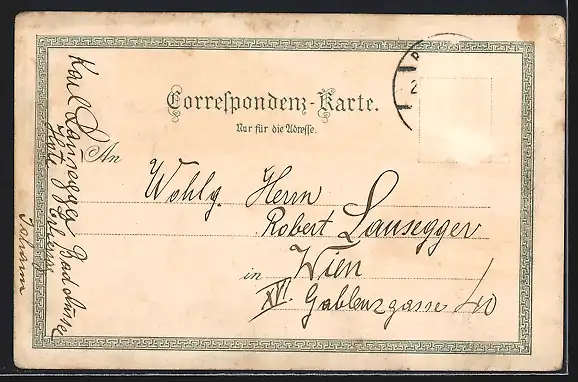 Correspondenz-Karte.
Nur für die Adresse.
An
Wohlg. Herrn
Robert Lausegger
in Wien
XVI. Gablenzgasse 40
Karl Lausegger Bad